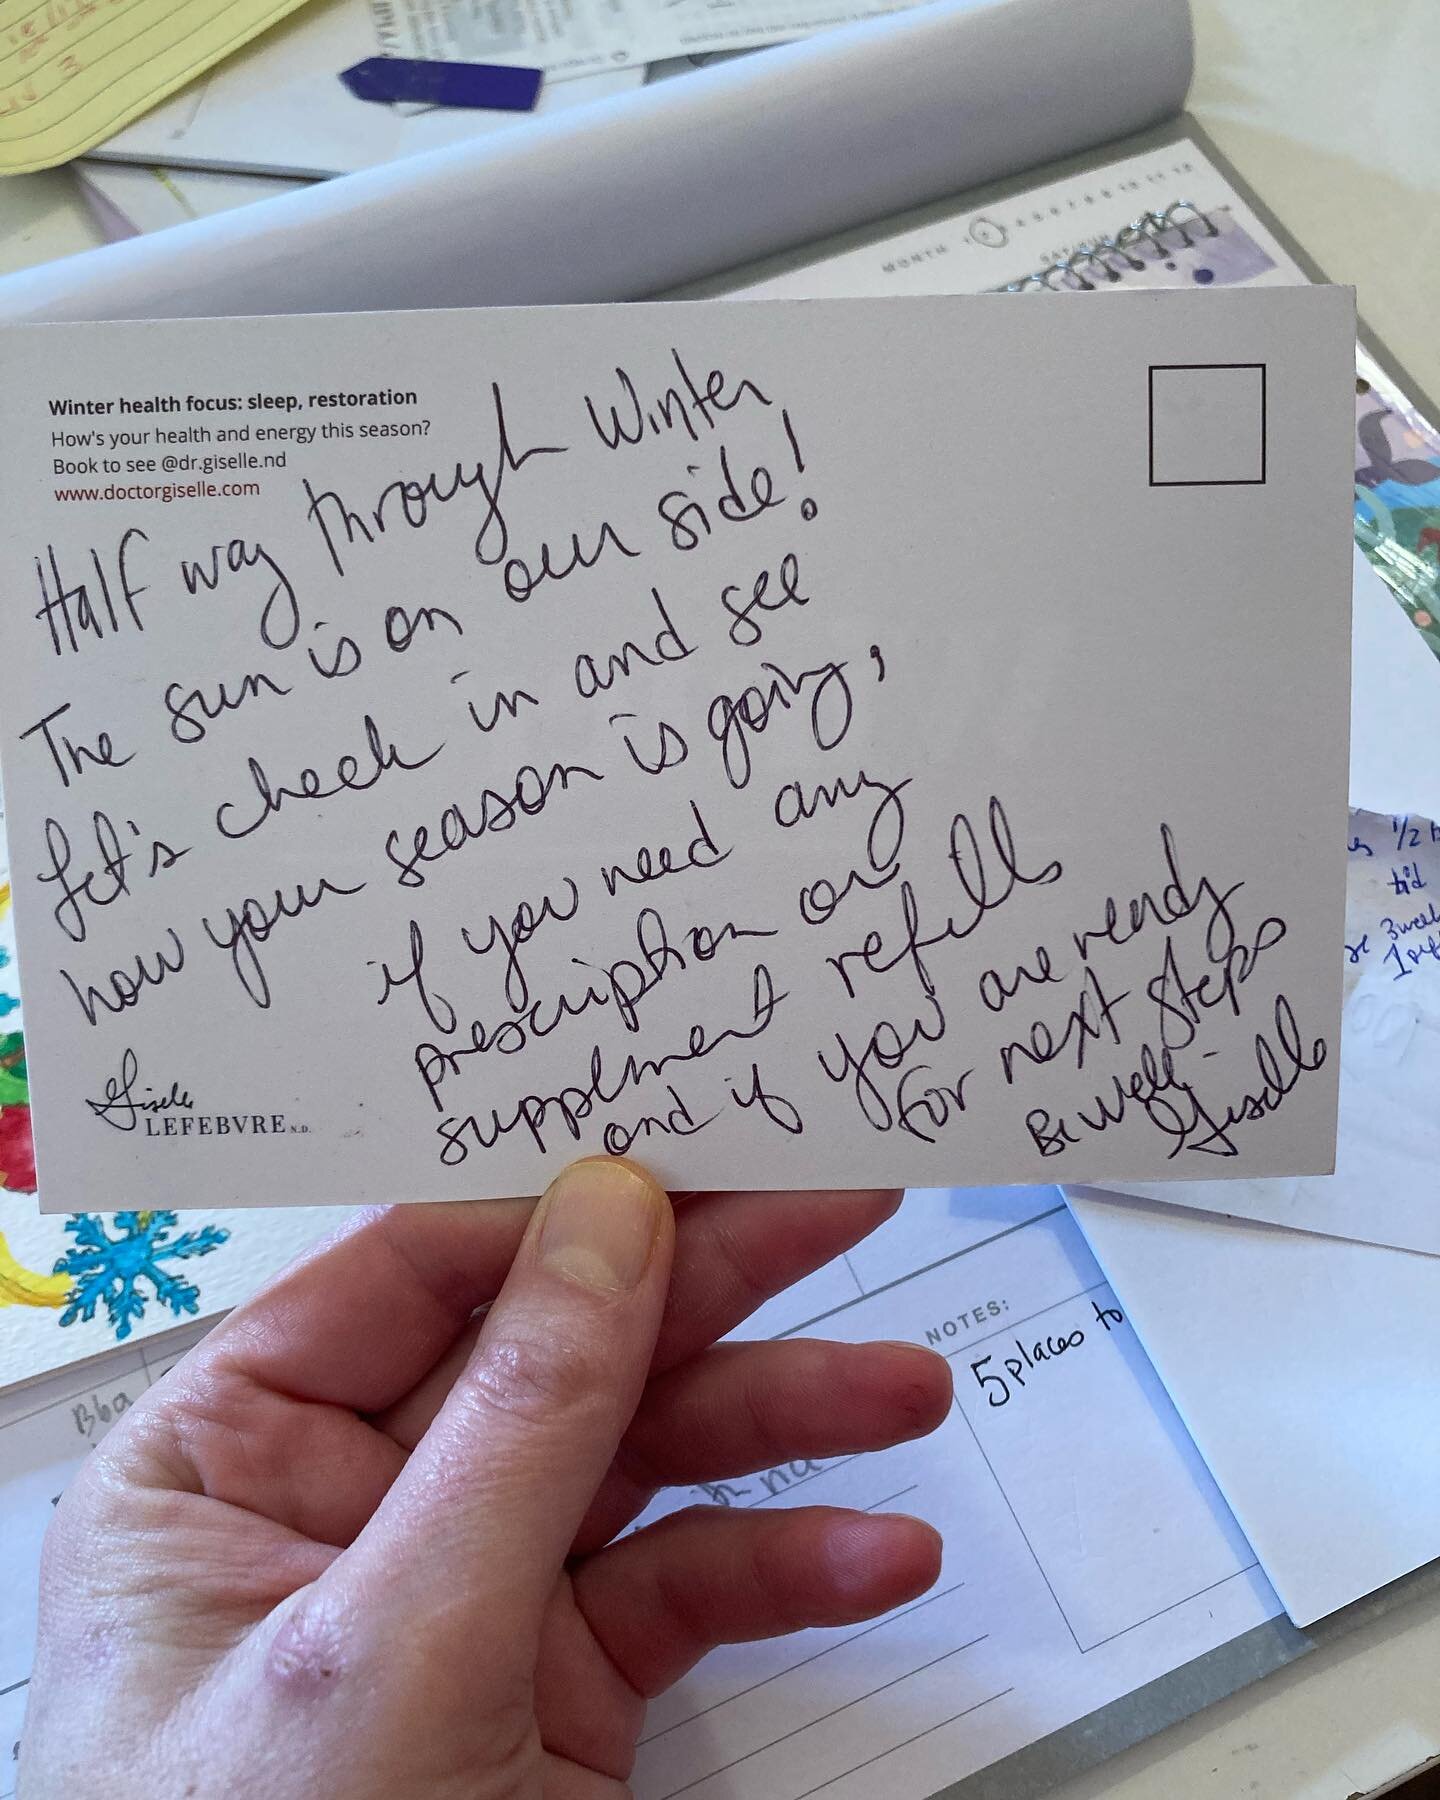 3
MONTH
Winter health focus: sleep, restoration
How's your health and energy this season?
Book to see @dr.giselle.nd
www.doctorgiselle.com
Half way through Winter
The sun is on our side!
Let's check in and see
how your season is going,
if you need any
prescription or
supplement refills
and if you are ready
for next steps
Be well -
Giselle
Giselle
LEFEBVRE N.D.
1/2
tid
NOTES:
5 places to